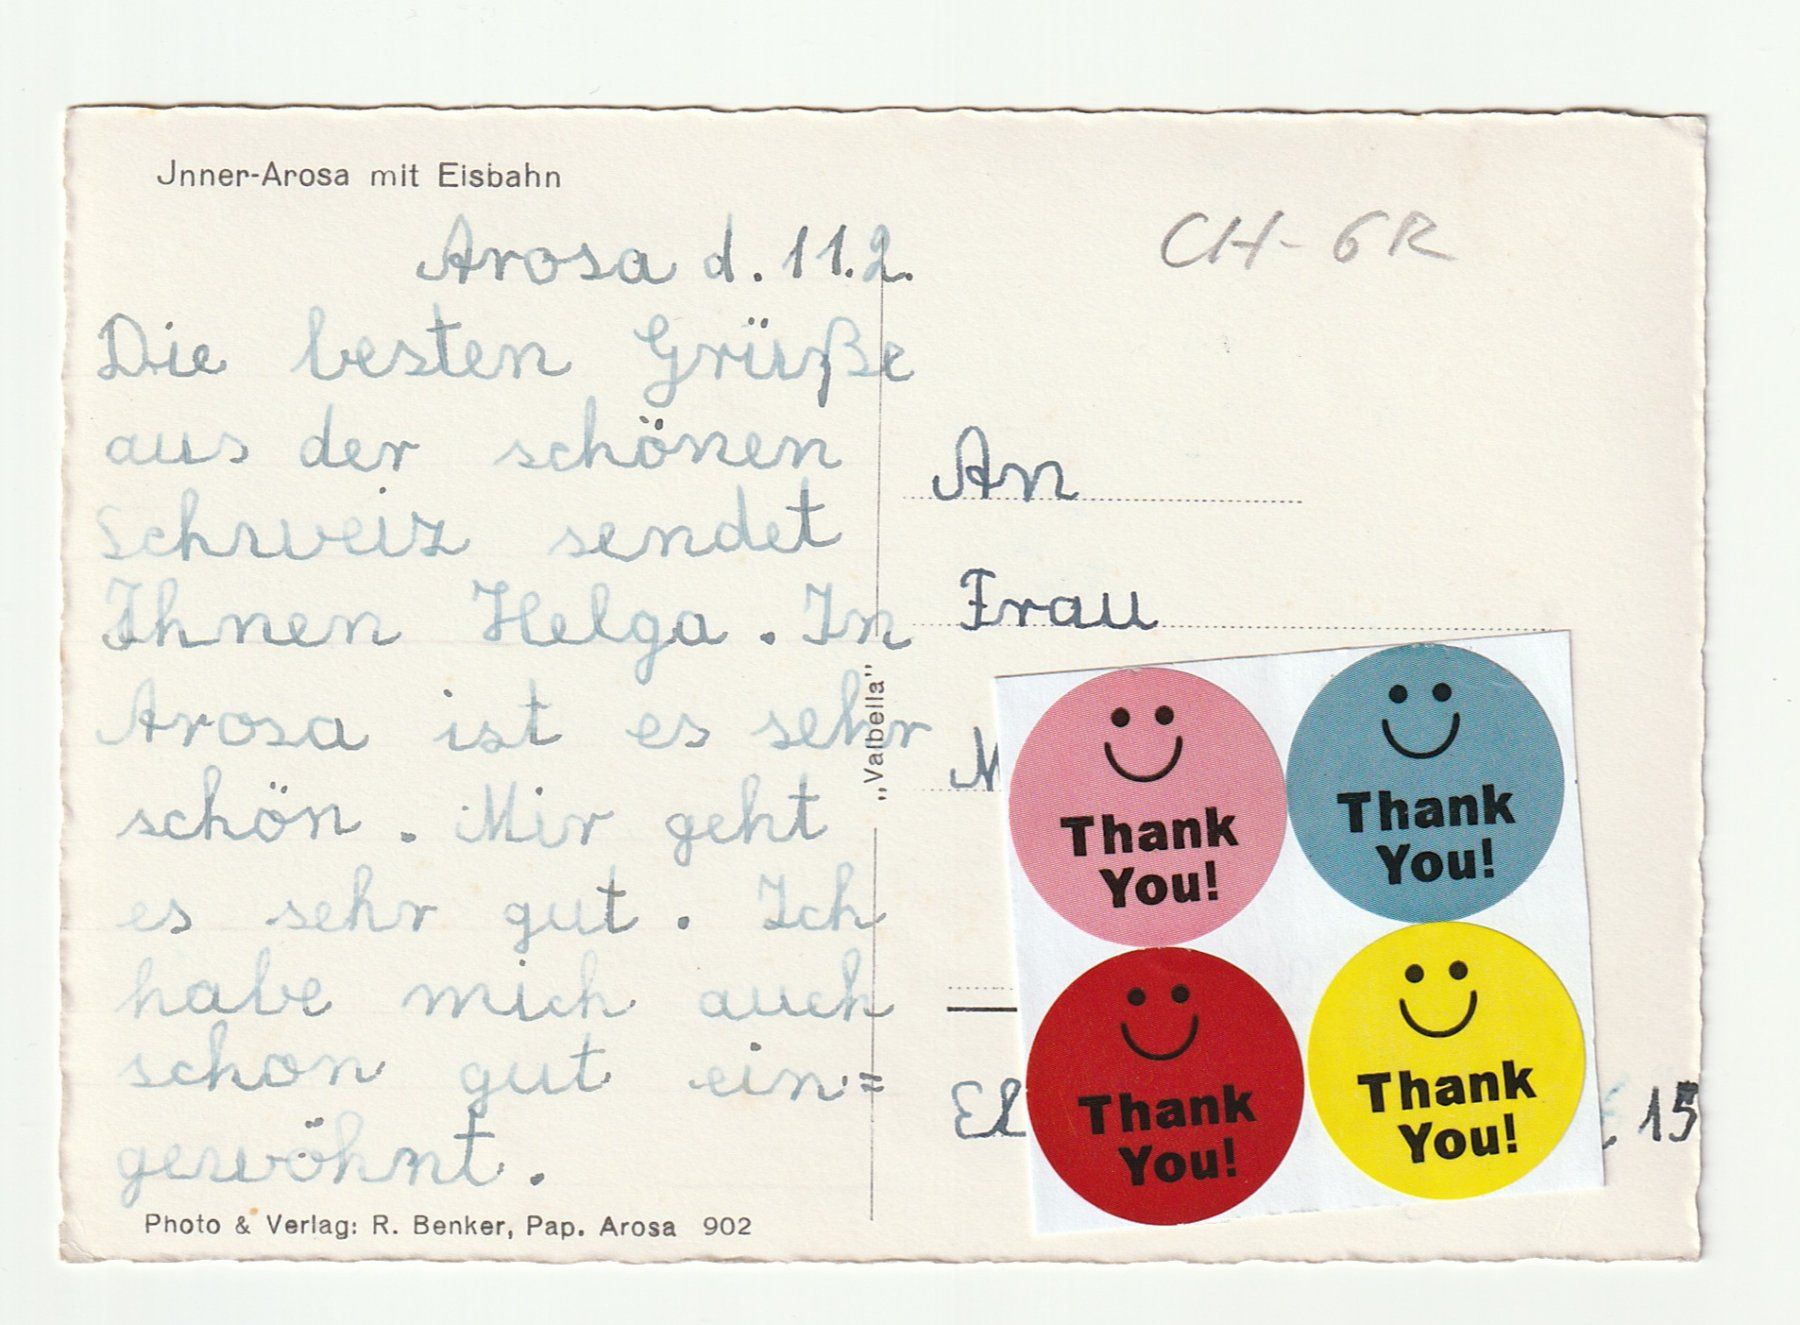 Jnner-Arosa mit Eisbahn
Arosa d. 11.2.
Die besten Grüße
aus der schönen
Schweiz sendet
Ihnen Helga. In
Arosa ist es sehr
schön. Mir geht
es sehr gut. Ich
habe mich auch
schon gut ein=
gewöhnt.
Photo & Verlag: R. Benker, Pap. Arosa 902
„Valbella"
CH-GR
An
Frau
Thank
You!
Thank
You!
Thank
You!
Thank
You!
15